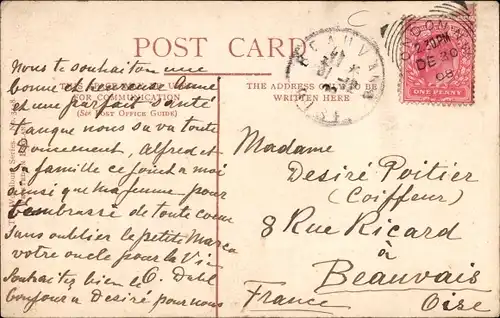 POST CARD
THE ADDRESS ONLY TO BE
WRITTEN HERE
FOR COMMUNICATION
(SEE POST OFFICE GUIDE)
LONDON
2.30PM
DE 30
08
ONE PENNY
BEAUVAIS
Nous te souhaitons une
bonne et heureuse Anne
et une parfait santé
tanque nous sa va toute
Doucement, Alfred et
sa famille ce joint a moi
ainsi que ma femme pour
t'embrassé de toute coeur
sans oublier le petite
votre oncle pour la Vie
Souhaitez bien le
bonjour a Desiré pour nous
Madame
Desiré Poitier
(Coiffeur)
8 Rue Ricard
à
Beauvais
France Oise